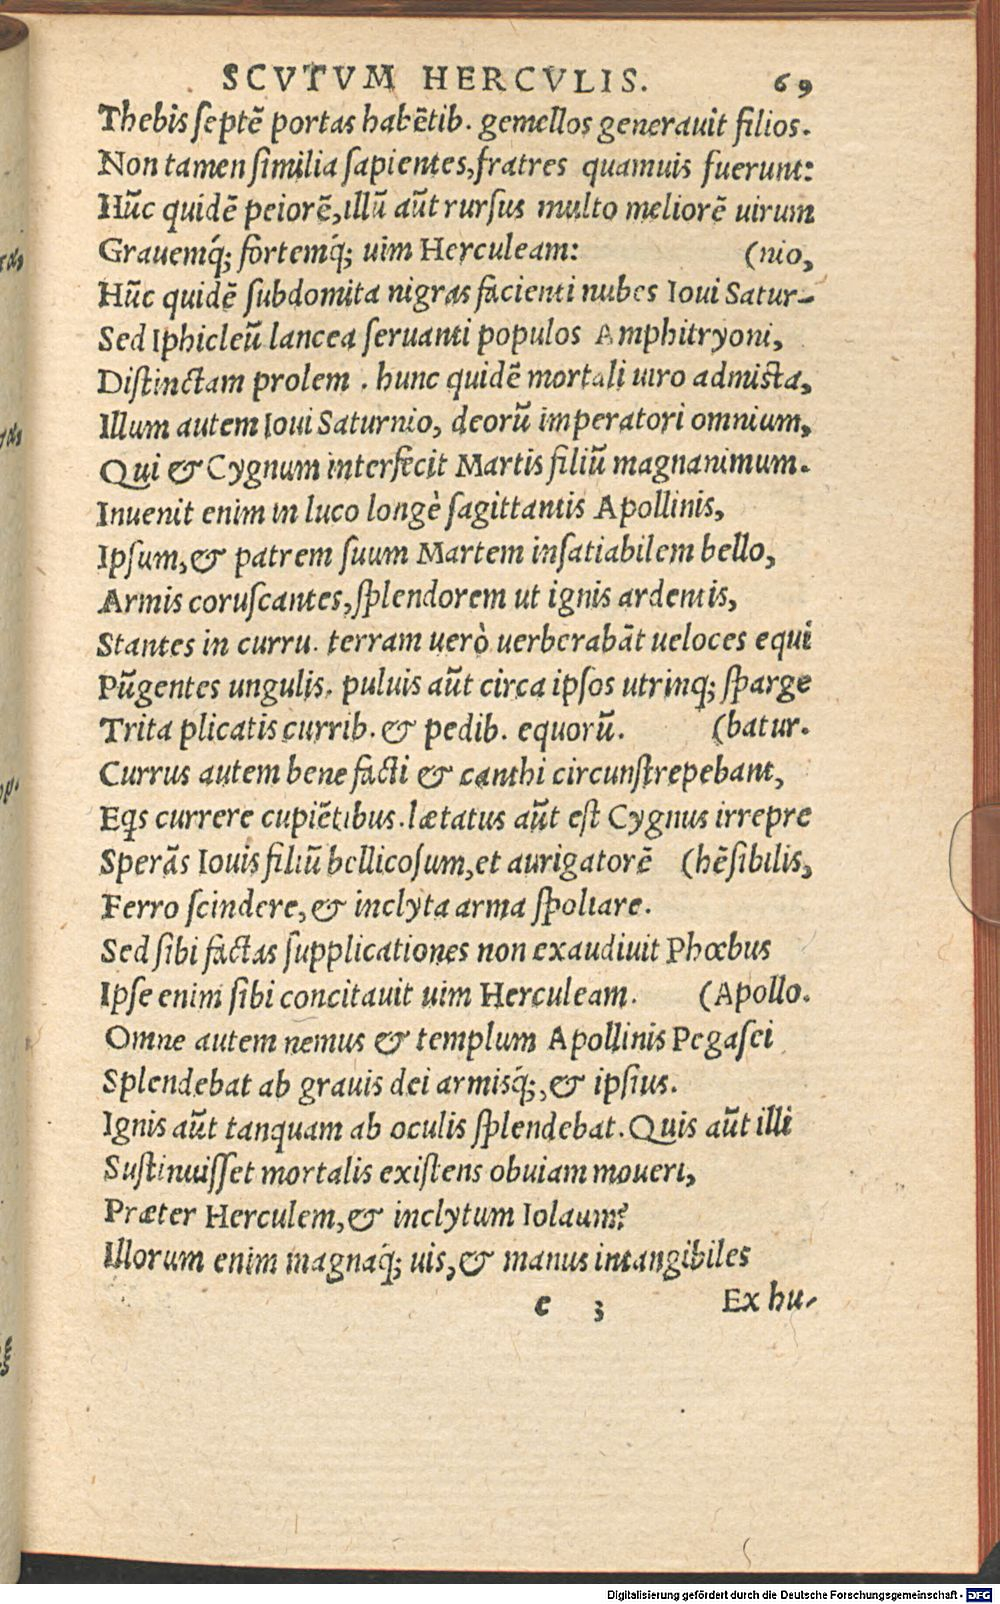 SCVTVM HERCVLIS. 69
Thebis ſeptẽ portas habẽtib. gemellos generauit filios.
Non tamen ſimilia ſapientes, fratres quamuis fuerunt:
Hũc quidẽ peiorẽ, illũ aũt rurſus multo meliorẽ uirum
Grauemq́; fortemq́; uim Herculeam: (nio,
Hũc quidẽ ſubdomita nigras facienti nubes Ioui Satur-
Sed Iphicleũ lancea ſeruanti populos Amphitryoni,
Diſtinctam prolem . hunc quidẽ mortali uiro admiſta,
Illum autem Ioui Saturnio, deorũ imperatori omnium,
Qui & Cygnum interfecit Martis filiũ magnanimum.
Inuenit enim in luco longè ſagittantis Apollinis,
Ipſum, & patrem ſuum Martem inſatiabilem bello,
Armis coruſcantes, ſplendorem ut ignis ardentis,
Stantes in curru. terram uerò uerberabãt ueloces equi
Pũgentes ungulis. puluis aũt circa ipſos utrinq; ſparge
Trita plicatis currib. & pedib. equorũ. (batur.
Currus autem bene facti & canthi circunſtrepebant,
Eqs currere cupiẽtibus. lætatus aũt eſt Cygnus irrepre
Sperãs Iouis filiũ bellicoſum, et aurigatorẽ (hẽſibilis,
Ferro ſcindere, & inclyta arma ſpoliare.
Sed ſibi factas ſupplicationes non exaudiuit Phœbus
Ipſe enim ſibi concitauit uim Herculeam. (Apollo.
Omne autem nemus & templum Apollinis Pegaſei
Splendebat ab grauis dei armisq́;, & ipſius.
Ignis aũt tanquam ab oculis ſplendebat. Quis aũt illi
Suſtinuiſſet mortalis exiſtens obuiam moueri,
Præter Herculem, & inclytum Iolaum?
Illorum enim magnaq́; uis, & manus intangibiles
e 3 Ex hu-
Digitalisierung gefördert durch die Deutsche Forschungsgemeinschaft - DFG